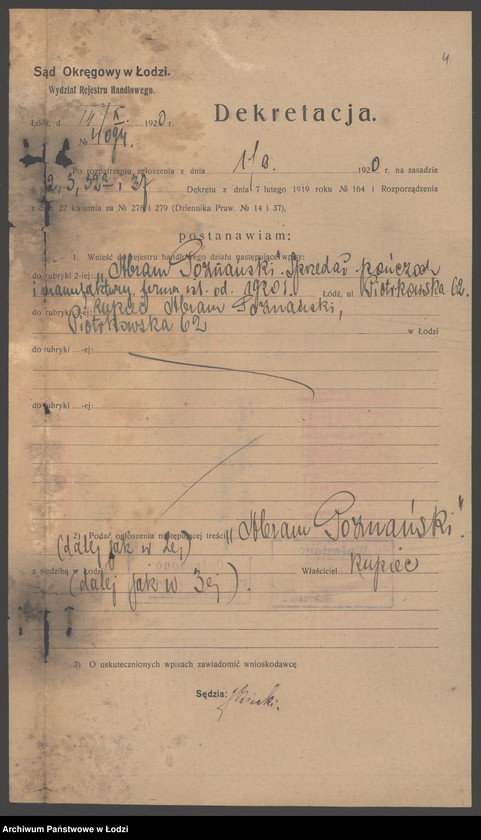 4
Sąd Okręgowy w Łodzi.
Wydział Rejestru Handlowego.
Łódź, d. 14/X 1920 r.
№ 4094.
Dekretacja.
Po rozpatrzeniu zgłoszenia z dnia 1920 r. na zasadzie
2, 3, 32 i 37 Dekretu z dnia 7 lutego 1919 roku № 164 i Rozporządzenia
z dnia 22 kwietnia za № 278 i 279 (Dziennika Praw. № 14 i 37),
postanawiam:
1. Wnieść do rejestru handlowego działu następujące wpisy:
do rubryki 2-iej: „Abram Poznański". Sprzedaż pończoch
i manufaktury, firma ist. od 1920 r. Łódź, ul Piotrkowska 62.
do rubryki 3ej: kupiec Abram Poznański,
Piotrkowska 62 w Łodzi
do rubryki ....-ej:
do rubryki ....-ej:
2) Podać ogłoszenia następującej treści: „Abram Poznański".
(dalej jak w 2ej)
z siedzibą w Łodzi Właściciel kupiec
(dalej jak w 3ej).
3) O uskutecznionych wpisach zawiadomić wnioskodawcę
Sędzia:
Archiwum Państwowe w Łodzi